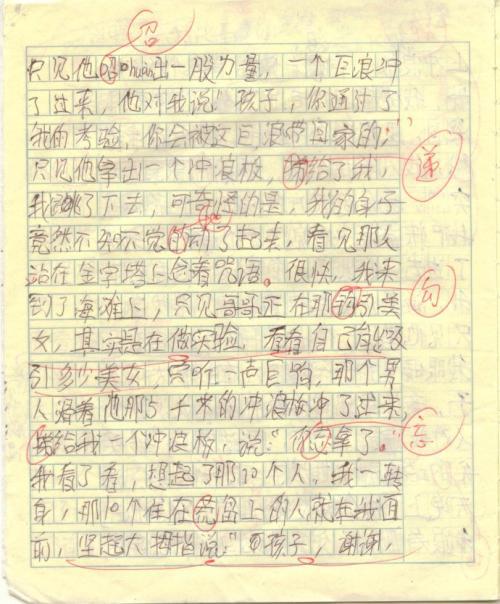 召
只见他昭huàn出一股力量，一个巨浪冲
了过来，他对我说“孩子，你通过了
我的考验，你会被这巨浪带回家的。”
只见他拿出一个冲浪板，给了我， 递
我跳了下去，可奇怪的是，我的身子
竟然不知不觉的动了起来，看见那人
站在金字塔上念着咒语。很快，我来
到了海滩上，只见哥哥正在那钩引美 勾
女，其实是在做实验，看看自己能吸
引多少美女，只听一声巨响，那个男
人沿着他那5千米的冲浪板冲了过来，
给我一个冲浪板，说：“你忘拿了。” 忘
我看了看，想起了那10个人，我一转
身，那10个住在荒岛上的人就在我面
前，坚起大拇指说：“孩子，谢谢，